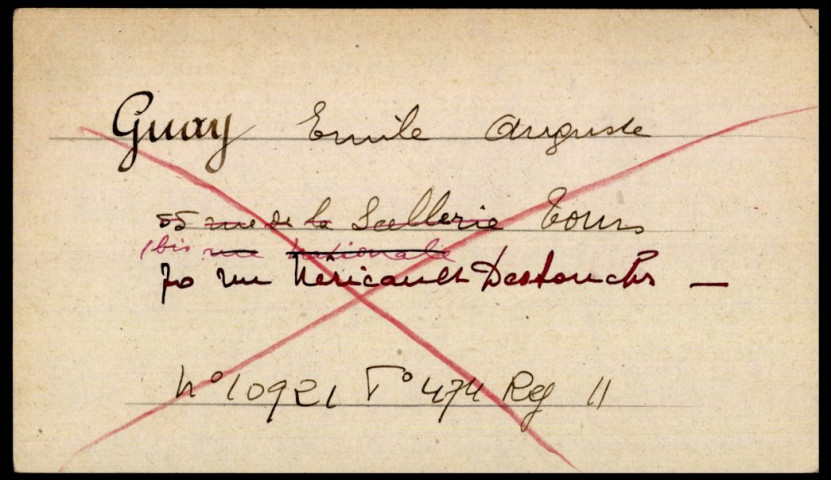 Guay Emile Auguste
55 rue de la Scellerie Tours
1 bis rue nationale
70 rue Néricault Destouches —
N° 10921 F° 474 Reg 11